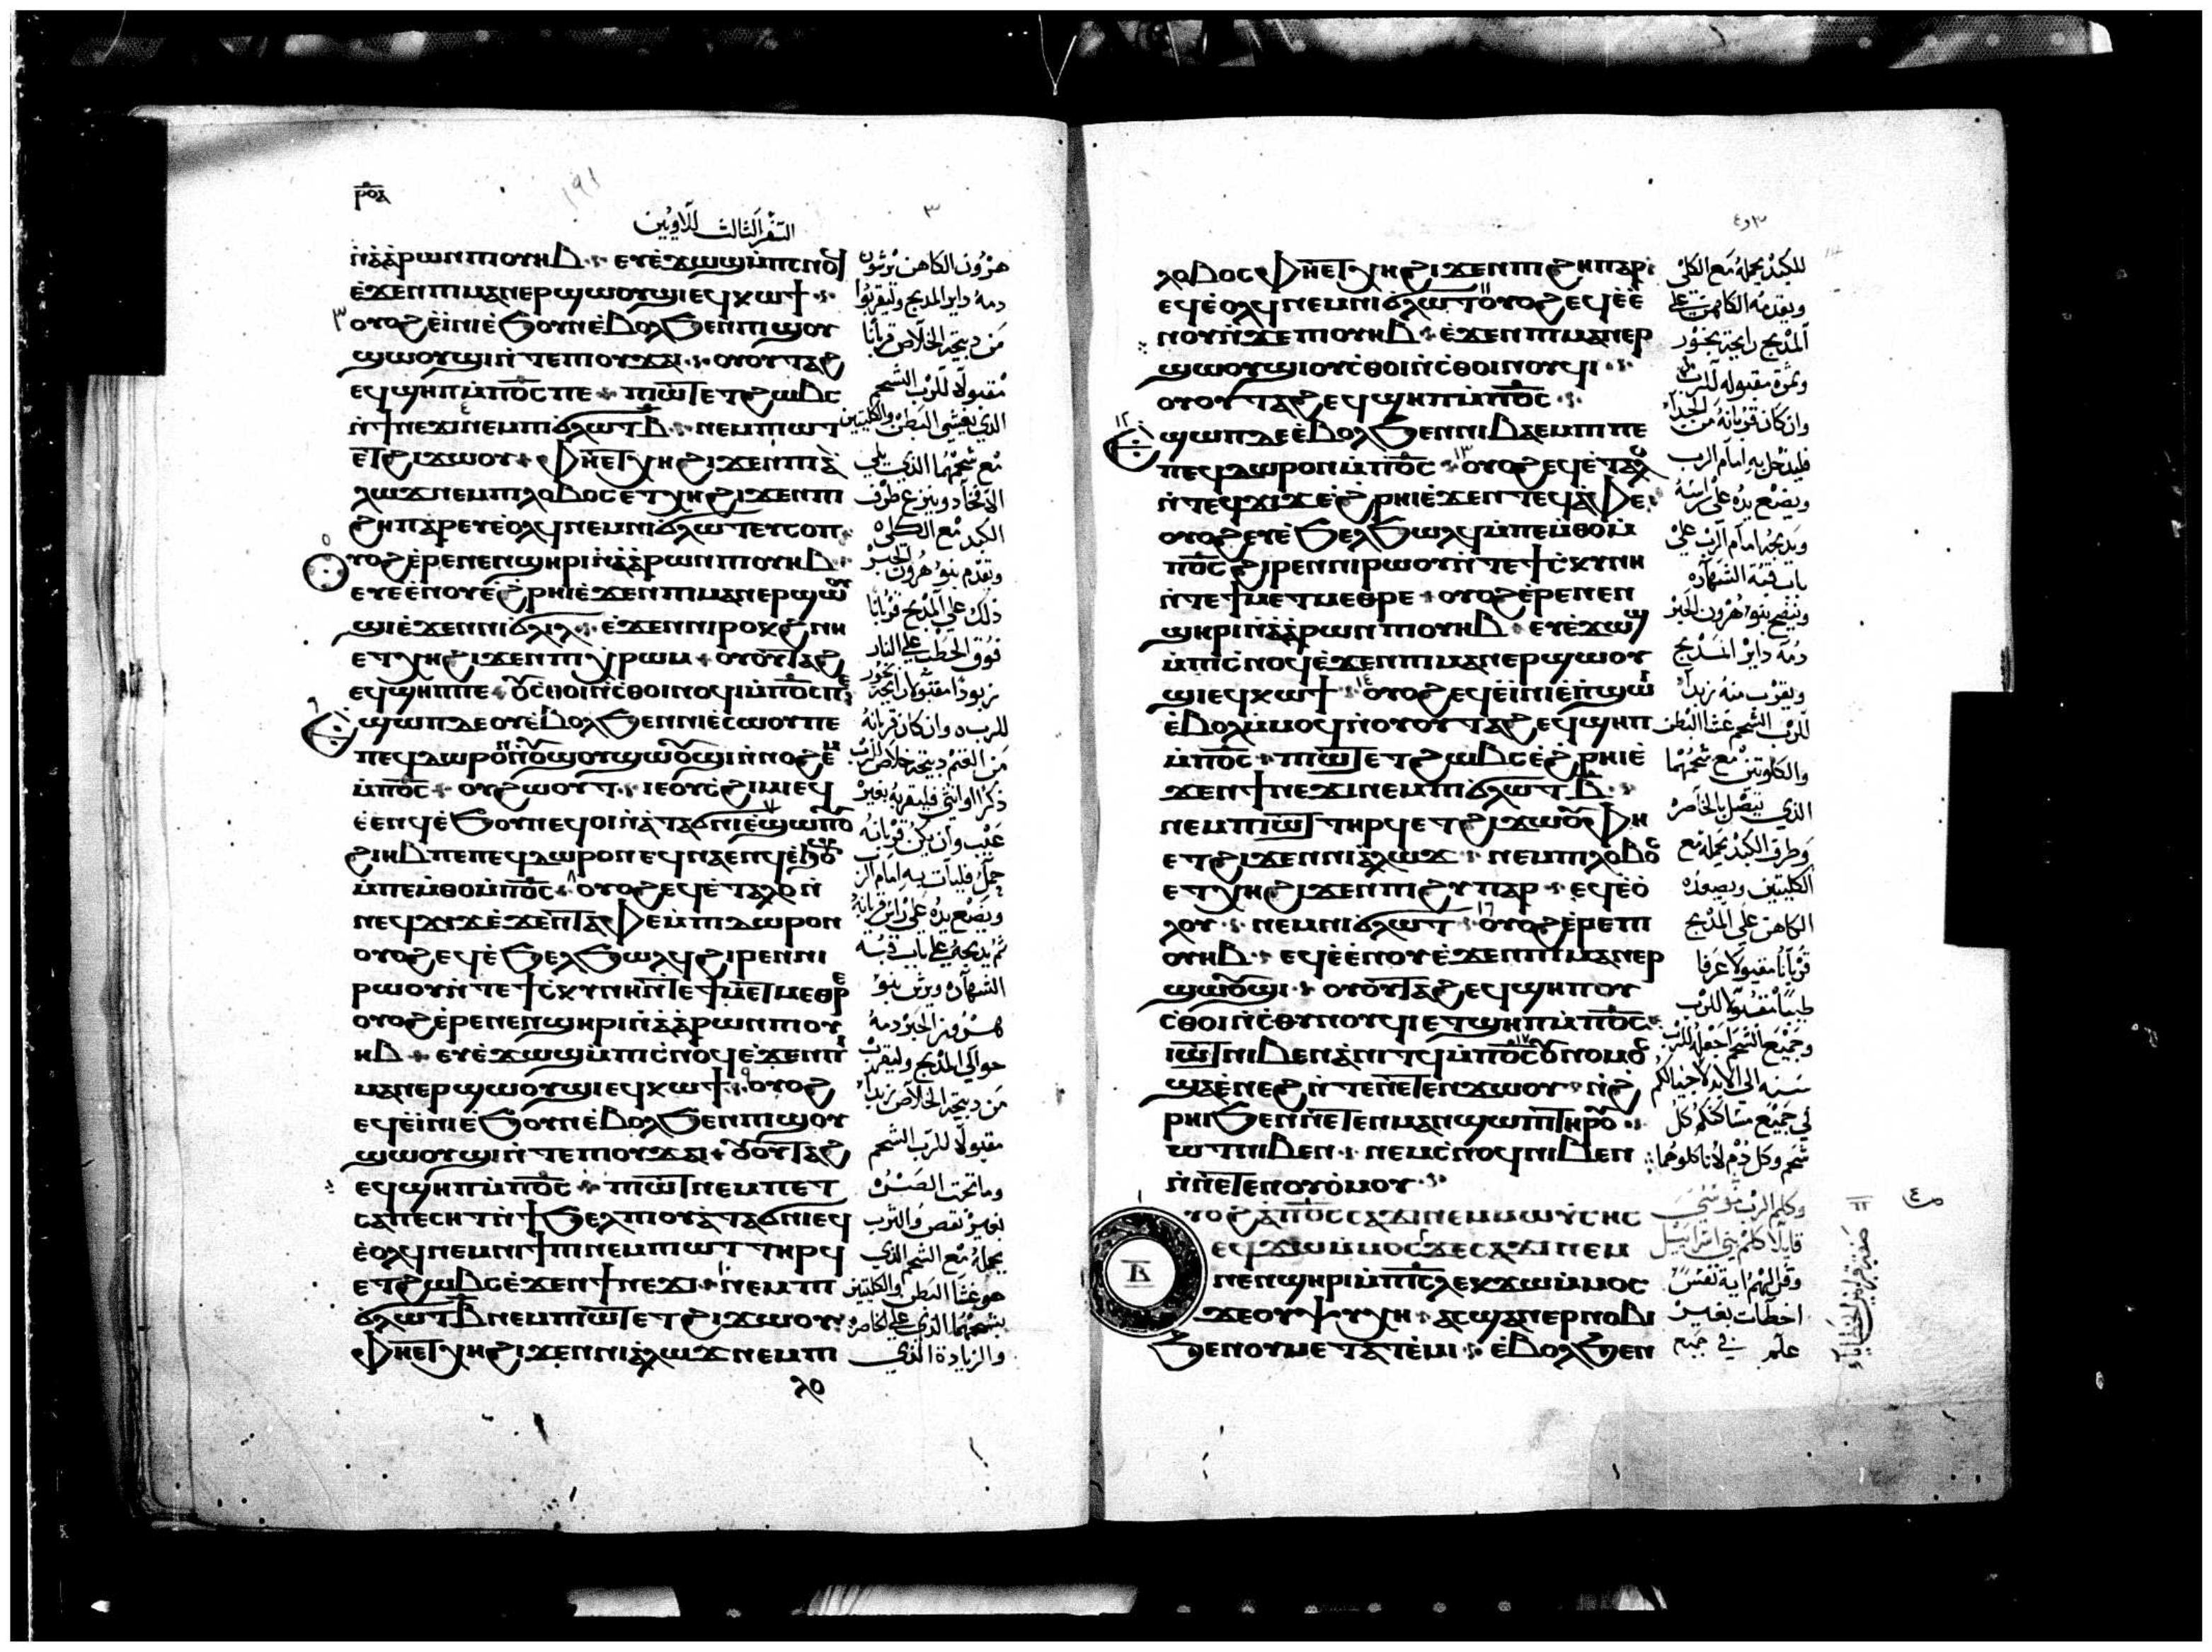 ⲣⲟⲁ
السفر الثالث للاويين
ⲛ̀ⲁ̀ⲁ̀ⲣⲱⲛ ⲡⲓⲟⲩⲏⲃ ⲉⲩⲉ̀ϫⲱϣ ⲙ̀ⲡⲥⲛⲟϥ
ⲉ̀ϫⲉⲛ ⲡⲓⲙⲁⲛⲉⲣϣⲱⲟⲩϣⲓ ⲉϥⲕⲱϯ
ⲟⲩⲟϩ ⲉ̀ⲓⲛⲓ ⲉ̀ϧⲟⲩⲛ ⲉ̀ⲃⲟⲗϧⲉⲛ ⲡⲓϣⲟⲩ
ϣⲱⲟⲩϣⲓ ⲛ̀ⲧⲉ ⲡⲓⲟⲩϫⲁⲓ ⲟⲩⲟⲩⲧⲁϩ
ⲉϥϣⲏⲡ ⲙ̀ⲡⲟ̅ⲥ̅ ⲡⲉ ⲡⲓⲱ̅ⲧ ⲉⲧϩⲱⲃⲥ
ⲛ̀ϯⲛⲉϫⲓ ⲛⲉⲙ ϯϭⲗⲱⲧ ⲃ̅ ⲛⲉⲙ ⲡⲓⲱⲧ
ⲉⲧϩⲓϫⲱⲟⲩ ⲫⲏⲉⲧⲭⲏ ϩⲓϫⲉⲛ ⲡⲓⲁ̀
ⲗⲱϫ ⲛⲉⲙ ⲡⲓⲗⲟⲃⲟⲥ ⲉⲧⲭⲏ ϩⲓϫⲉⲛ ⲡⲓ
ϩⲏⲡⲁⲣ ⲉⲩⲉ̀ⲟⲗϥ ⲛⲉⲙ ⲛⲓϭⲗⲱⲧ ⲉⲩⲥⲟⲡ
ⲟⲩⲟϩ ⲉ̀ⲣⲉ ⲛⲉⲛϣⲏⲣⲓ ⲛ̀ⲁ̀ⲁ̀ⲣⲱⲛ ⲡⲓⲟⲩⲏⲃ
ⲉⲩⲉ̀ⲉ̀ⲛⲟⲩ ⲉ̀ϩⲣⲏⲓ ⲉ̀ϫⲉⲛ ⲡⲓⲙⲁⲛⲉⲣϣⲱⲟⲩ
ϣⲓ ⲉ̀ϫⲉⲛ ⲛⲓϭⲗⲓⲗ ⲉ̀ϫⲉⲛ ⲛⲓⲣⲟⲕϩ ⲛⲏ
ⲉⲧⲭⲏ ϩⲓϫⲉⲛ ⲡⲓⲭⲣⲱⲙ ⲟⲩⲟⲩⲧⲁϩ
ⲉϥϣⲏⲡ ⲡⲉ ⲟⲩⲥ̀ⲑⲟⲓ ⲛ̀ⲥ̀ⲑⲟⲓⲛⲟϥⲓ ⲙ̀ⲡⲟ̅ⲥ̅ ⲡⲉ
ⲉϣⲱⲡ ⲇⲉ ⲟⲩⲉ̀ⲃⲟⲗϧⲉⲛ ⲛⲓⲉ̀ⲥⲱⲟⲩ ⲡⲉ
ⲡⲉϥⲇⲱⲣⲟⲛ ⲛ̀ⲟⲩϣⲟⲩϣⲱⲟⲩϣⲓ ⲛ̀ⲛⲟϩⲉⲙ
ⲙ̀ⲡⲟ̅ⲥ̅ ⲟⲩϩⲱⲟⲩⲧ ⲓⲉ ⲟⲩⲥ̀ϩⲓⲙⲓ ⲉϥ
ⲉ̀ⲉⲛϥ ⲉ̀ϧⲟⲩⲛ ⲉϥⲟⲓ ⲛ̀ⲁⲧⲁϭⲛⲓ ⲉ̀ϣⲱⲡ ⲟⲩ
ϩⲓⲏⲃ ⲡⲉ ⲡⲉϥⲇⲱⲣⲟⲛ ⲉϥⲛⲁⲉⲛϥ ⲉ̀ϧⲟⲩⲛ
ⲙ̀ⲡⲉⲙ̀ⲑⲟ ⲙ̀ⲡⲟ̅ⲥ̅ ⲟⲩⲟϩ ⲉϥⲉ̀ⲧⲁⲗⲟ ⲛ̀
ⲛⲉϥϫⲓϫ ⲉ̀ϫⲉⲛ ⲧⲁⲫⲉ ⲙ̀ⲡⲓⲇⲱⲣⲟⲛ
ⲟⲩⲟϩ ⲉϥⲉ̀ϧⲉⲗϧⲱⲗϥ ϩⲓⲣⲉⲛ ⲛⲓ
ⲣⲱⲟⲩ ⲛ̀ⲧⲉ ϯⲥ̀ⲕⲩⲛⲏ ⲛ̀ⲧⲉ ϯⲙⲉⲧⲙⲉⲑⲣⲉ
ⲟⲩⲟϩ ⲉ̀ⲣⲉ ⲛⲉⲛϣⲏⲣⲓ ⲛ̀ⲁ̀ⲁ̀ⲣⲱⲛ ⲡⲓⲟⲩ
ⲏⲃ ⲉⲩⲉ̀ϫⲱϣ ⲙ̀ⲡⲓⲥ̀ⲛⲟϥ ⲉ̀ϫⲉⲛ ⲡⲓ
ⲙⲁⲛⲉⲣϣⲱⲟⲩϣⲓ ⲉϥⲕⲱϯ ⲟⲩⲟϩ
ⲉϥⲉ̀ⲓⲛⲓ ⲉ̀ϧⲟⲩⲛ ⲉ̀ⲃⲟⲗϧⲉⲛ ⲡⲓϣⲟⲩ
ϣⲱⲟⲩϣⲓ ⲛ̀ⲧⲉ ⲡⲓⲟⲩϫⲁⲓ ⲟⲩⲟⲩⲧⲁϩ
ⲉϥϣⲏⲡ ⲙ̀ⲡⲟ̅ⲥ̅ ⲡⲓⲱⲧ ⲛⲉⲙ ⲡⲉⲧ
ⲥⲁⲡⲉⲥⲏⲧ ⲛ̀ϯϧⲉⲗⲡⲓ ⲟⲩⲁⲧⲁϭⲛⲓ ⲉϥ
ⲉ̀ⲟⲗϥ ⲛⲉⲙ ⲛⲓϯⲡⲓ ⲛⲉⲙ ⲡⲓⲱⲧ ⲧⲏⲣϥ
ⲉⲧϩⲱⲃⲥ ⲉ̀ϫⲉⲛ ϯⲛⲉϫⲓ ⲛⲉⲙ ϯ
ϭⲗⲱⲧ ⲃ̅ ⲛⲉⲙ ⲡⲓⲱⲧ ⲉⲧϩⲓϫⲱⲟⲩ
ⲫⲏⲉⲧⲭⲏ ϩⲓϫⲉⲛ ⲛⲓⲁ̀ⲗⲱϫ ⲛⲉⲙ ⲡⲓ
ⲗⲟ
هرون الكاهن يرشون
دمه داير المذبح وليقربوا
من ذبيحة الخلاص قربانا
مقبولا للرب الشحم
الذي يغشي البطن والكليتين
مع شحمهما الذي يلي
الكبد مع الكلى
وتقدم بنو هرون الحبر
ذلك علي المذبح قربانا
فوق الحطب علي النار
للرب وان كان قربانه
من الغنم ذبيحة خلاص للرب
ذكرا او انثي فليقربه بغير
عيب وان يكن قربانه
حمل فليات به امام الرب
ويضع يده علي راس قربانه
ثم يذبحه علي باب قبة
الشهاده ويرش بنو
هرون الحبر دمه
حوالي المذبح وليقرب
من ذبيحة الخلاص
مقبولا للرب الشحم
بغير نقص والثرب
يحمله مع الشحم الذي
هو غشا البطن والكليتين
بشحمهما الذي علي الخاصره
والزيادة الذي
ⲗⲟⲃⲟⲥ ⲫⲏⲉⲧⲭⲏ ϩⲓϫⲉⲛ ⲡⲓϩⲏⲡⲁⲣ
ⲉϥⲉ̀ⲟⲗϥ ⲛⲉⲙ ⲛⲓϭⲗⲱⲧ ⲟⲩⲟϩ ⲉϥⲉ̀ⲉ̀
ⲛⲟⲩ ⲛ̀ϫⲉ ⲡⲓⲟⲩⲏⲃ ⲉ̀ϫⲉⲛ ⲡⲓⲙⲁⲛⲉⲣ
ϣⲱⲟⲩϣⲓ ⲟⲩⲥ̀ⲑⲟⲓ ⲛ̀ⲥ̀ⲑⲟⲓⲛⲟⲩϥⲓ
ⲟⲩⲟⲩⲧⲁϩ ⲉϥϣⲏⲡ ⲙ̀ⲡⲟ̅ⲥ̅
ⲉϣⲱⲡ ⲇⲉ ⲉ̀ⲃⲟⲗϧⲉⲛ ⲛⲓⲃⲁⲉⲙⲡⲓ ⲡⲉ
ⲡⲉϥⲇⲱⲣⲟⲛ ⲙ̀ⲡⲟ̅ⲥ̅ ⲟⲩⲟϩ ⲉϥⲉ̀ⲧⲁⲗⲟ
ⲛ̀ⲧⲉϥϫⲓϫ ⲉ̀ϩⲣⲏⲓ ⲉ̀ϫⲉⲛ ⲧⲉϥⲁ̀ⲫⲉ
ⲟⲩⲟϩ ⲉⲩⲉ̀ϧⲉⲗϧⲱⲗϥ ⲙ̀ⲡⲉⲙ̀ⲑⲟ ⲙ̀
ⲡⲟ̅ⲥ̅ ϩⲓⲣⲉⲛ ⲛⲓⲣⲱⲟⲩ ⲛ̀ⲧⲉ ϯⲥ̀ⲕⲩⲛⲏ
ⲛ̀ⲧⲉ ϯⲙⲉⲧⲙⲉⲑⲣⲉ ⲟⲩⲟϩ ⲉ̀ⲣⲉ ⲛⲉⲛ
ϣⲏⲣⲓ ⲛ̀ⲁ̀ⲁ̀ⲣⲱⲛ ⲡⲓⲟⲩⲏⲃ ⲉⲩⲉ̀ϫⲱϣ
ⲙ̀ⲡⲓⲥ̀ⲛⲟϥ ⲉ̀ϫⲉⲛ ⲡⲓⲙⲁⲛⲉⲣϣⲱⲟⲩ
ϣⲓ ⲉϥⲕⲱϯ ⲟⲩⲟϩ ⲉϥⲉ̀ⲓⲛⲓ ⲉ̀ⲡϣⲱⲓ
ⲉ̀ⲃⲟⲗ ⲙ̀ⲙⲟϥ ⲛ̀ⲟⲩⲟⲩⲧⲁϩ ⲉϥϣⲏⲡ
ⲙ̀ⲡⲟ̅ⲥ̅ ⲡⲓⲱⲧ ⲉⲧϩⲱⲃⲥ ⲉ̀ϩⲣⲏⲓ ⲉ̀
ϫⲉⲛ ϯⲛⲉϫⲓ ⲛⲉⲙ ϯϭⲗⲱⲧ ⲃ̅
ⲛⲉⲙ ⲡⲓⲱⲧ ⲧⲏⲣϥ ⲉⲧϩⲓϫⲱⲟⲩ ⲫⲏ
ⲉⲧϩⲓϫⲉⲛ ⲛⲓⲁ̀ⲗⲱϫ ⲛⲉⲙ ⲡⲓⲗⲟⲃⲟⲥ
ⲉⲧⲭⲏ ϩⲓϫⲉⲛ ⲡⲓϩⲩⲡⲁⲣ ⲉϥⲉ̀ⲟ̀
ⲗⲟⲩ ⲛⲉⲙ ⲛⲓϭⲗⲱⲧ ⲟⲩⲟϩ ⲉ̀ⲣⲉ ⲡⲓ
ⲟⲩⲏⲃ ⲉϥⲉ̀ⲉ̀ⲛⲟⲩ ⲉ̀ϫⲉⲛ ⲡⲓⲙⲁⲛⲉⲣ
ϣⲱⲟⲩϣⲓ ⲟⲩⲟⲩⲧⲁϩ ⲉϥϣⲏⲡ ⲟⲩ
ⲥ̀ⲑⲟⲓ ⲛ̀ⲥ̀ⲑⲩⲛⲟⲩϥⲓ ⲉⲧϣⲏⲡ ⲙ̀ⲡⲟ̅ⲥ̅
ⲓⲱⲧ ⲛⲓⲃⲉⲛ ⲁ̀ⲛⲓⲧϥ ⲙ̀ⲡⲟ̅ⲥ̅ ⲟⲩⲛⲟⲙⲟⲥ
ϣⲁⲉ̀ⲛⲉϩ ⲛ̀ⲧⲉ ⲛⲉⲧⲉⲛϫⲱⲟⲩ ⲛ̀ϩ
ⲣⲏⲓ ϧⲉⲛ ⲛⲉⲧⲉⲛⲙⲁⲛϣⲱⲡⲓ ⲧⲏⲣⲟⲩ
ⲱⲧ ⲛⲓⲃⲉⲛ ⲛⲉⲙ ⲥ̀ⲛⲟϥ ⲛⲓⲃⲉⲛ
ⲛ̀ⲛⲉⲧⲉⲛⲟⲩⲟ̀ⲙⲟⲩ
ⲟⲩⲟϩ ⲁ̀ⲡⲟ̅ⲥ̅ ⲥⲁϫⲓ ⲛⲉⲙ ⲙⲱⲩⲥⲏⲥ
ⲉϥϫⲱ ⲙ̀ⲙⲟⲥ ϫⲉ ⲥⲁϫⲓ ⲛⲉⲙ
ⲛⲉⲛϣⲏⲣⲓ ⲙ̀ⲡⲓⲥ̅ⲗ̅ ⲉⲕϫⲱ ⲙ̀ⲙⲟⲥ
ϫⲉ ⲟⲩⲯⲩⲭⲏ ⲁⲥϣⲁⲛⲉⲣⲛⲟⲃⲓ
ϧⲉⲛ ⲟⲩⲙⲉⲧⲁⲧⲉ̀ⲙⲓ ⲉ̀ⲃⲟⲗϧⲉⲛ
للكبد يحمله مع الكلى
ويقدمه الكاهن علي
المذبح رايحة بخور
وثمرة مقبوله للرب
وان كان قربانه من الجدا
فليدخل به امام الرب
ويضع يده علي راسه
ويذبحه امام الرب علي
باب قبة الشهاده
وينضح بنو هرون الحبر
دمه داير المذبح
للرب الشحم غشا البطن
والكلوتين مع شحمهما
الذي يتصل بالخاصره
وطرف الكبد يحمله مع
الكليتين ويصعده
الكاهن علي المذبح
قربانا مقبولا عرفا
وجميع الشحم اجعله للرب
سنه الي الابد لاجيالكم
في جميع مساكنكم كل
شحم وكل دم لا تاكلوهما
وكلم الرب موسي
قايلا كلم بني اسراييل
وقل لهم اية نفس
اخطات بغير
علم في جميع